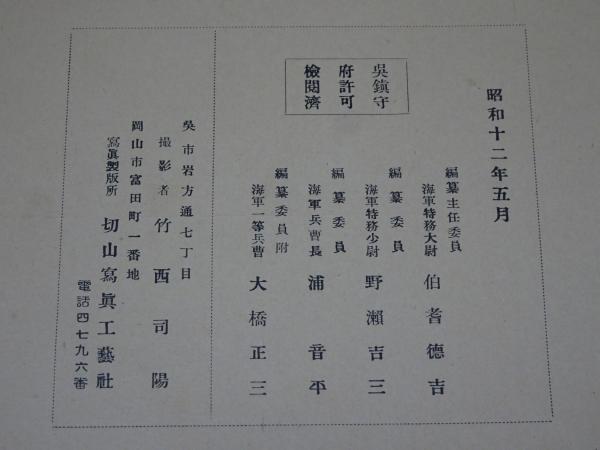 昭和十二年五月
吳鎭守
府許可
檢閱濟
編纂主任委員
海軍特務大尉 伯耆德吉
編纂委員
海軍特務少尉 野瀨吉三
編纂委員
海軍兵曹長 浦音平
編纂委員附
海軍一等兵曹 大橋正三
吳市岩方通七丁目
撮影者 竹西司陽
岡山市富田町一番地
寫眞製版所 切山寫眞工藝社
電話四七九六番